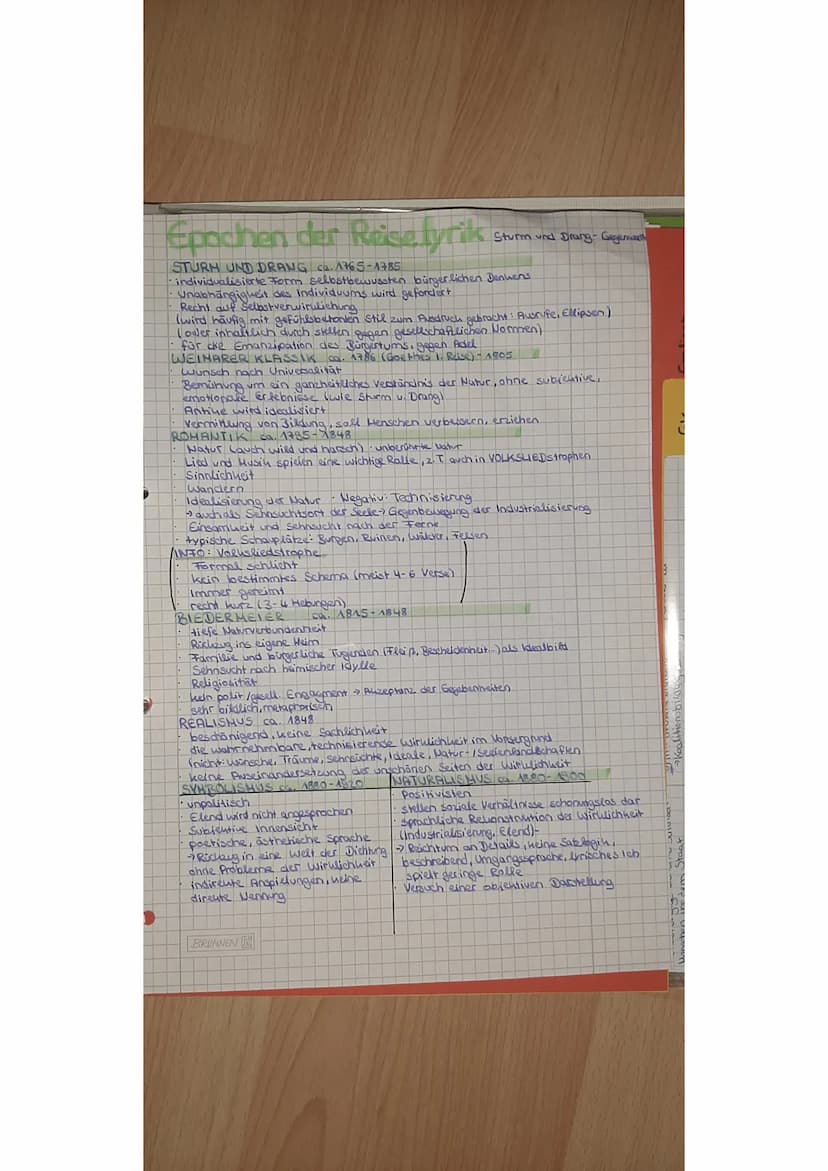 Epochen der Reiselyrik Sturm und Drang - Gegenwart
STURM UND DRANG ca. 1765-1785
· individualisierte Form selbstbewussten bürgerlichen Denkens
· Unabhängigkeit des Individuums wird gefordert
· Recht auf Selbstverwirklichung
(wird häufig mit gefühlsbetonten Stil zum Ausdruck gebracht: Ausrufe, Ellipsen)
(oder inhaltlich durch stellen gegen gesellschaftlichen Normen)
· für die Emanzipation des Bürgertums, gegen Adel
WEIMARER KLASSIK ca. 1786 (Goethes 1. Reise) - 1805
· Wunsch nach Universalität
· Bemühung um ein ganzheitliches Verständnis der Natur, ohne subjektive,
emotionale Erlebnisse (wie Sturm u. Drang)
· Antike wird idealisiert
· Vermittlung von Bildung, soll Menschen verbessern, erziehen
ROMANTIK ca. 1795-1848
· Natur (auch wild und harsch) · unberührte Natur
· Lied und Musik spielen eine wichtige Rolle, z.T. auch in VOLKSLIEDstrophen
· Sinnlichkeit
· Wandern
· Idealisierung der Natur · Negativ: Technisierung
→ auch als Sehnsuchtsort der Seele → Gegenbewegung der Industrialisierung
· Einsamkeit und Sehnsucht nach der Ferne
· typische Schauplätze: Burgen, Ruinen, Wälder, Felsen
INFO: Volksliedstrophe
· Formal schlicht
· kein bestimmtes Schema (meist 4-6 Verse)
· immer gereimt
· recht kurz (3-4 Hebungen)
BIEDERMEIER ca. 1815-1848
· tiefe Naturverbundenheit
· Rückzug ins eigene Heim
· Familie und bürgerliche Tugenden (Fleiß, Bescheidenheit...) als Idealbild
· Sehnsucht nach heimischer Idylle
· Religiosität
· kein polit./gesell. Engagment → Akzeptanz der Gegebenheiten
· sehr bildlich, metaphorisch
REALISMUS ca. 1848
· beschönigend, keine Sachlichkeit
· die wahrnehmbare, technisierende Wirklichkeit im Vordergrund
(nicht: Wünsche, Träume, Sehnsüchte, Ideale, Natur-/Seelenlandschaften
· keine Auseinandersetzung der unschönen Seiten der Wirklichkeit
SYMBOLISMUS ca. 1890-1920
· unpolitisch
· Elend wird nicht angesprochen
· Subjektive Innensicht
· poetische, ästhetische Sprache
→ Rückzug in eine Welt der Dichtung
ohne Probleme der Wirklichkeit
· indirekte Anspielungen, keine
direkte Nennung
NATURALISMUS ca. 1880-1900
· Positivisten
· stellen soziale Verhältnisse schonungslos dar
· sprachliche Rekonstruktion der Wirklichkeit
(Industrialisierung, Elend)
→ Reichtum an Details, keine Satzlogik,
beschreibend, Umgangssprache, lyrisches Ich
spielt geringe Rolle
· Versuch einer objektiven Darstellung
BRUNNEN
→Koalitionsbildung